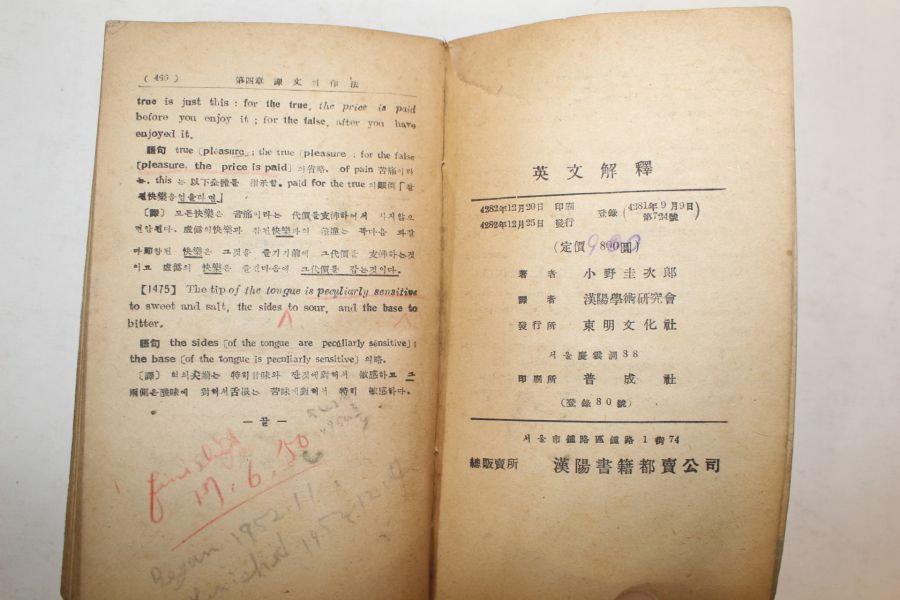 ( 466 ) 第四章 課文의作法
true is just this : for the true, the price is paid
before you enjoy it ; for the false, after you have
enjoyed it.
語句 true [pleasure ; the true [pleasure ; for the false
[pleasure, the price is paid] 의省略. of pain 苦痛이라
는. this 는 以下全體를 指示함. paid for the true 의
된快樂을
[譯] 모든快樂은 苦痛이라는 代價를支拂하여서
虛僞의快樂과 참된快樂과의
참된 快樂은 그것을 즐기기前에 그代價를 支拂하는것
이고 虛僞의 快樂은 즐긴다음에 그代價를 갚는것이다.
[1475] The tip of the tongue is peculiarly sensitive
to sweet and salt, the sides to sour, and the base to
bitter.
語句 the sides [of the tongue are peculiarly sensitive] ;
the base [of the tongue is peculiarly sensitive] 의略.
[譯] 혀의尖端는 特히甘味와 짠것에對해서 敏感하고 그
兩側은酸味에 對해서舌根는 苦味에對해서 特히 敏感하다.
— 끝 —
finished
17. 6. 50
Began 1952.11.
finished 1952.12.
英文解釋
4282年12月20日 印刷
4282年12月25日 發行
登錄 (4281年9月9日 第724號)
(定價 800圓)
900
著者 小野圭次郎
譯者 漢陽學術硏究會
發行所 東明文化社
서울慶雲洞38
印刷所 普成社
(登錄80號)
서울市鐘路區鐘路1街74
總販賣所 漢陽書籍都賣公司